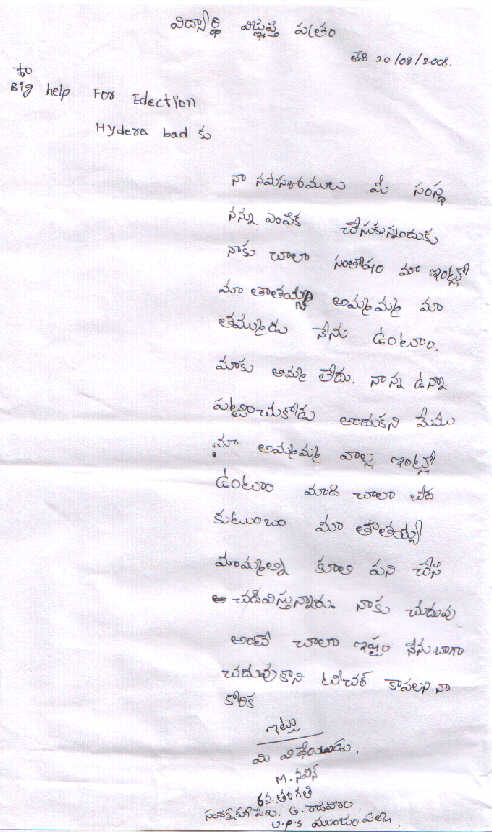 విద్యార్థి విజ్ఞప్తి పత్రం
తేది 20/08/2008.
to
Big help For Edection
Hydera bad కు
నా నమస్కారములు మీ సంస్థ
నన్ను ఎంపిక చేసుకున్నందుకు
నాకు చాలా సంతోషం మా ఇంట్లో
మా తాతయ్య అమ్మమ్మ మా
తమ్ముడు నేను ఉంటాం.
మాకు అమ్మ లేదు. నాన్న ఉన్నా
పట్టించుకోడు అందుకని మేము
మా అమ్మమ్మ వాళ్ల ఇంట్లో
ఉంటాం మాది చాలా పేద
కుటుంబం మా తాతయ్య
మమ్మల్ని కూలి పని చేసి
చదివిస్తున్నారు. నాకు చదువు
అంటే చాలా ఇష్టం నేను బాగా
చదువుకొని టీచర్ కావాలని నా
కోరిక
ఇట్లు
మీ విధేయుడు.
M. నవీన
6వ తరగతి
U.P.S